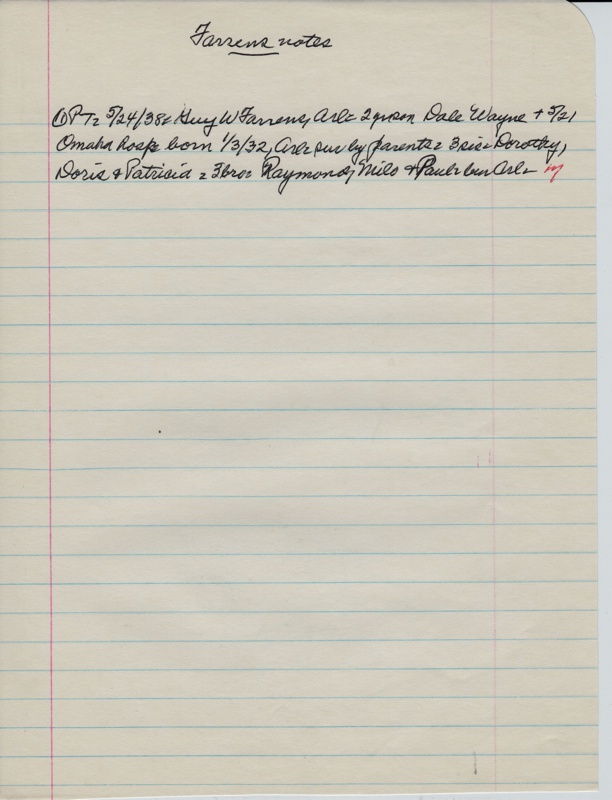 Farrens notes
OPT= 5/24/38= Guy W Farrens, Arl= 2 yr son Dale Wayne + 5/21
Omaha hosp= born 1/3/32, Arl= sur by parents= 3 sis= Dorothy,
Doris & Patricia = 3 bro= Raymond, Milo & Paul= bur Arl=